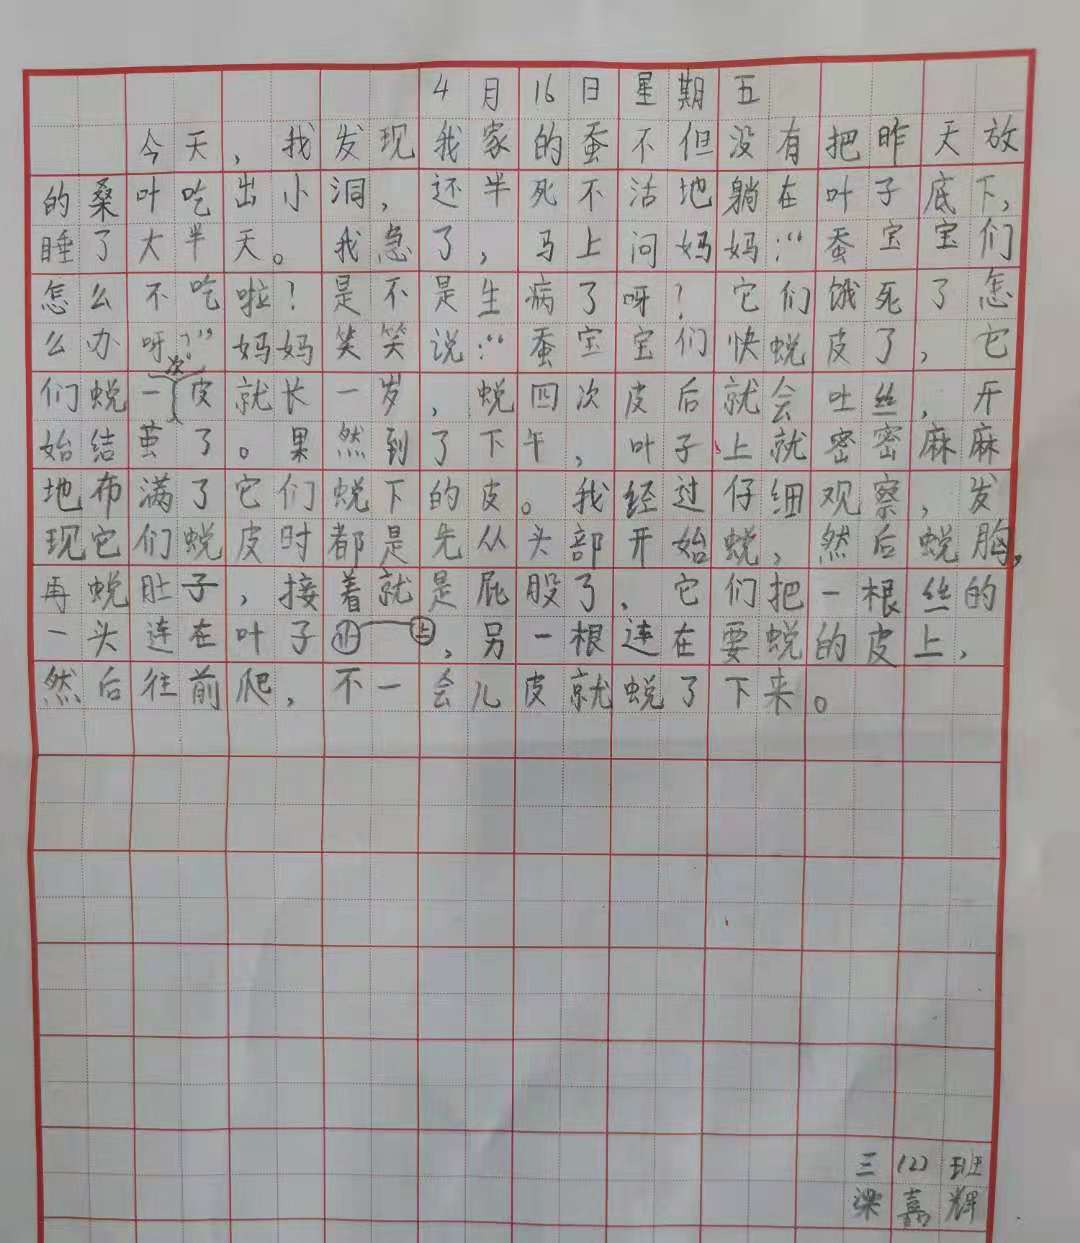 4月16日星期五
今天，我发现我家的蚕不但没有把昨天放
的桑叶吃出小洞，还半死不活地躺在叶子底下，
睡了大半天。我急了，马上问妈妈：“蚕宝宝们
怎么不吃啦？是不是生病了呀？它们饿死了怎
么办呀？”妈妈笑笑说：“蚕宝宝们快蜕皮了，它
们蜕一次皮就长一岁，蜕四次皮后就会吐丝，开
始结茧了。果然到了下午，叶子上就密密麻麻
地布满了它们蜕下的皮。我经过仔细观察，发
现它们蜕皮时都是先从头部开始蜕，然后蜕胸，
再蜕肚子，接着就是屁股了。它们把一根丝的
一头连在叶子上，另一根连在要蜕的皮上，
然后往前爬，不一会儿皮就蜕了下来。
三（2）班
梁嘉辉